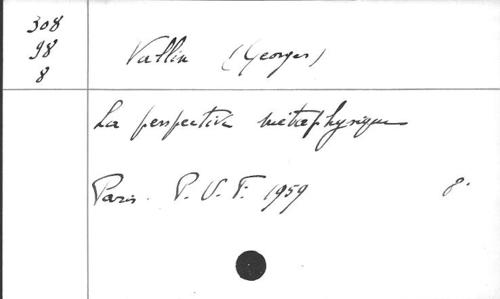 308
98
8
Vallin (Georges)
La perspective métaphysique
Paris. P.U.F. 1959 8°